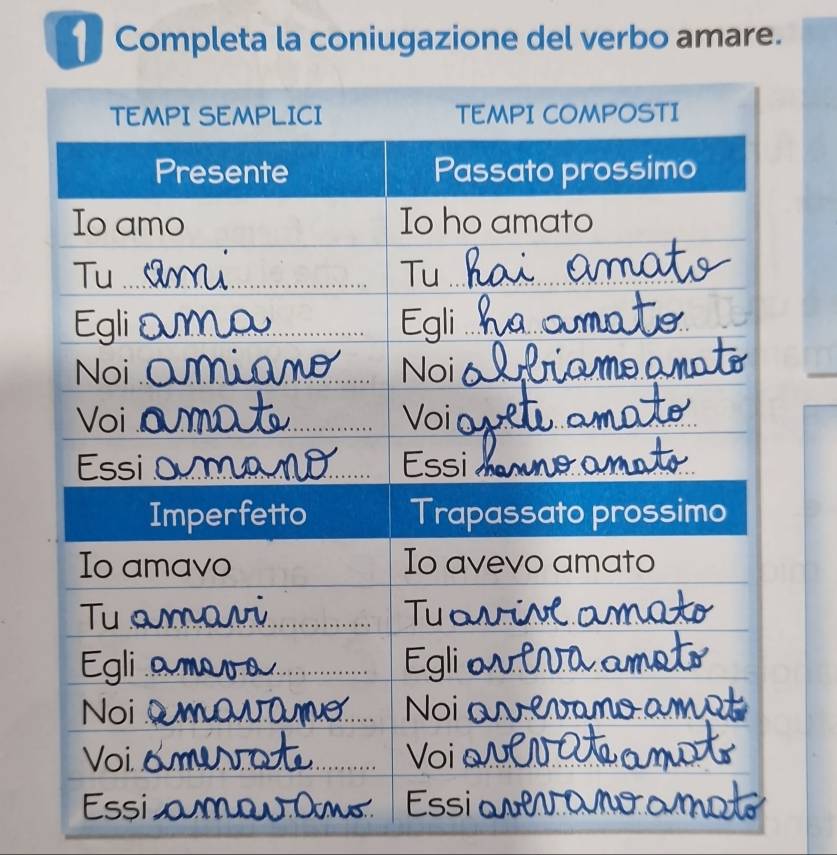 1 Completa la coniugazione del verbo amare.
TEMPI SEMPLICI TEMPI COMPOSTI
Presente Passato prossimo
Io amo Io ho amato
Tu ami Tu hai amato
Egli ama Egli ha amato
Noi amiano Noi abbiamo amato
Voi amate Voi avete amato
Essi amano Essi hanno amato
Imperfetto Trapassato prossimo
Io amavo Io avevo amato
Tu amavi Tu avive amato
Egli amava Egli aveva amato
Noi amavamo Noi avevano amato
Voi amavate Voi avevate amato
Essi amavano Essi avevano amato